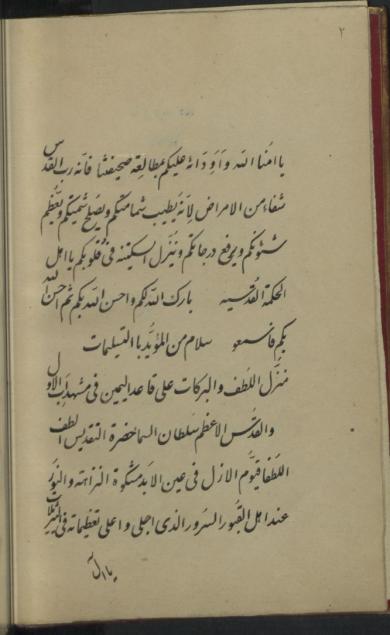 ٢
يا امنا الله و اودائه عليكم بمطالعة صحيفتنا فانه رب القدس
شفاء من الامراض لانه يطيب شمامتكم ويصلح شميتكم ويعظم
شئونكم ويرفع درجاتكم وينزل السكينه فى قلوبكم يا اهل
الحكمة القدسيه بارك الله لكم واحسن الله بكم ثم احسن الله
بكم فاسمعو سلام من المؤيد بالتسليمات
منزل اللطف والبركات على قاعد اليمين فى مشهد الاول
والقدس الاعظم سلطان السما حضرة التقديس الطف
اللطفا قيوم الازل فى عين الابد مشكوة النزاهة والنور
عند اهل القبور السرور الذى اجلى واعلى تعظيماته فى